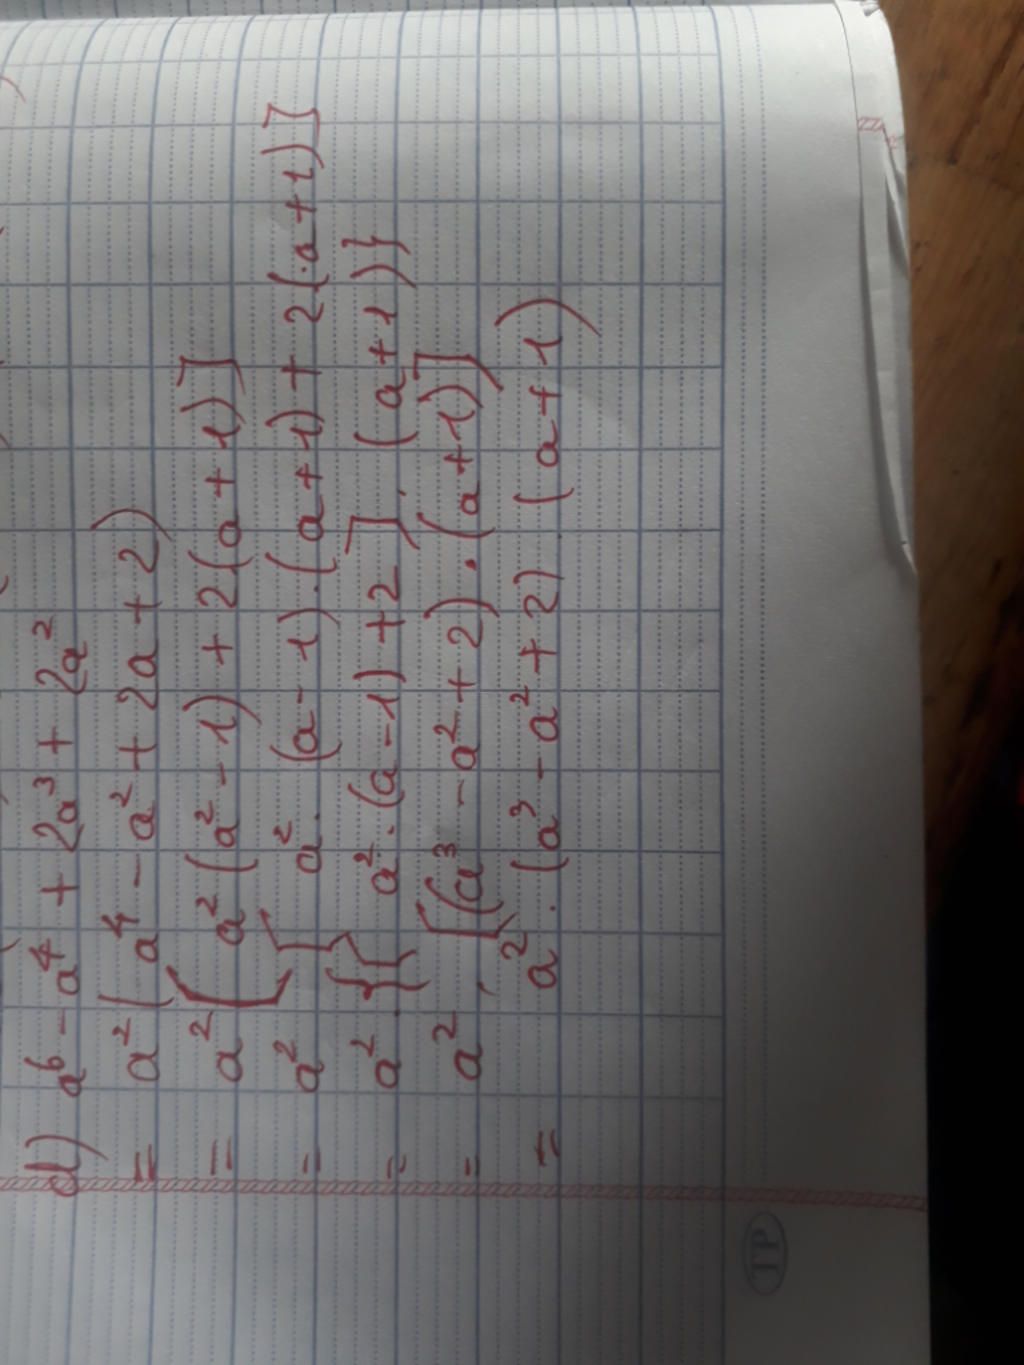 d) a⁶ - a⁴ + 2a³ + 2a²
= a² (a⁴ - a² + 2a + 2)
= a² [a² (a² - 1) + 2(a + 1)]
= a² [a² . (a - 1) . (a + 1) + 2(.a + 1)]
= a² . {[a² . (a - 1) + 2] . (a + 1)}
= a² . [(a³ - a² + 2) . (a + 1)]
= a² . (a³ - a² + 2) (a + 1)
TP